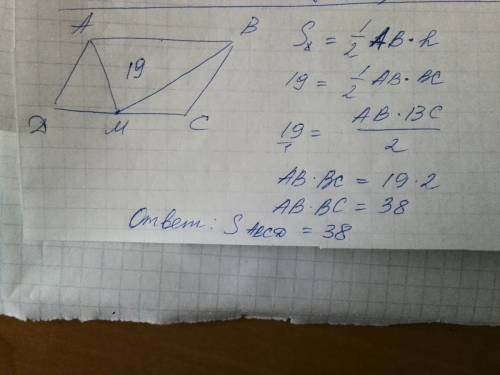 A B
19
D M C
S∆ = 1/2 AB · h
19 = 1/2 AB · BC
19/1 = AB · BC / 2
AB · BC = 19 · 2
AB · BC = 38
Ответ: S ABCD = 38